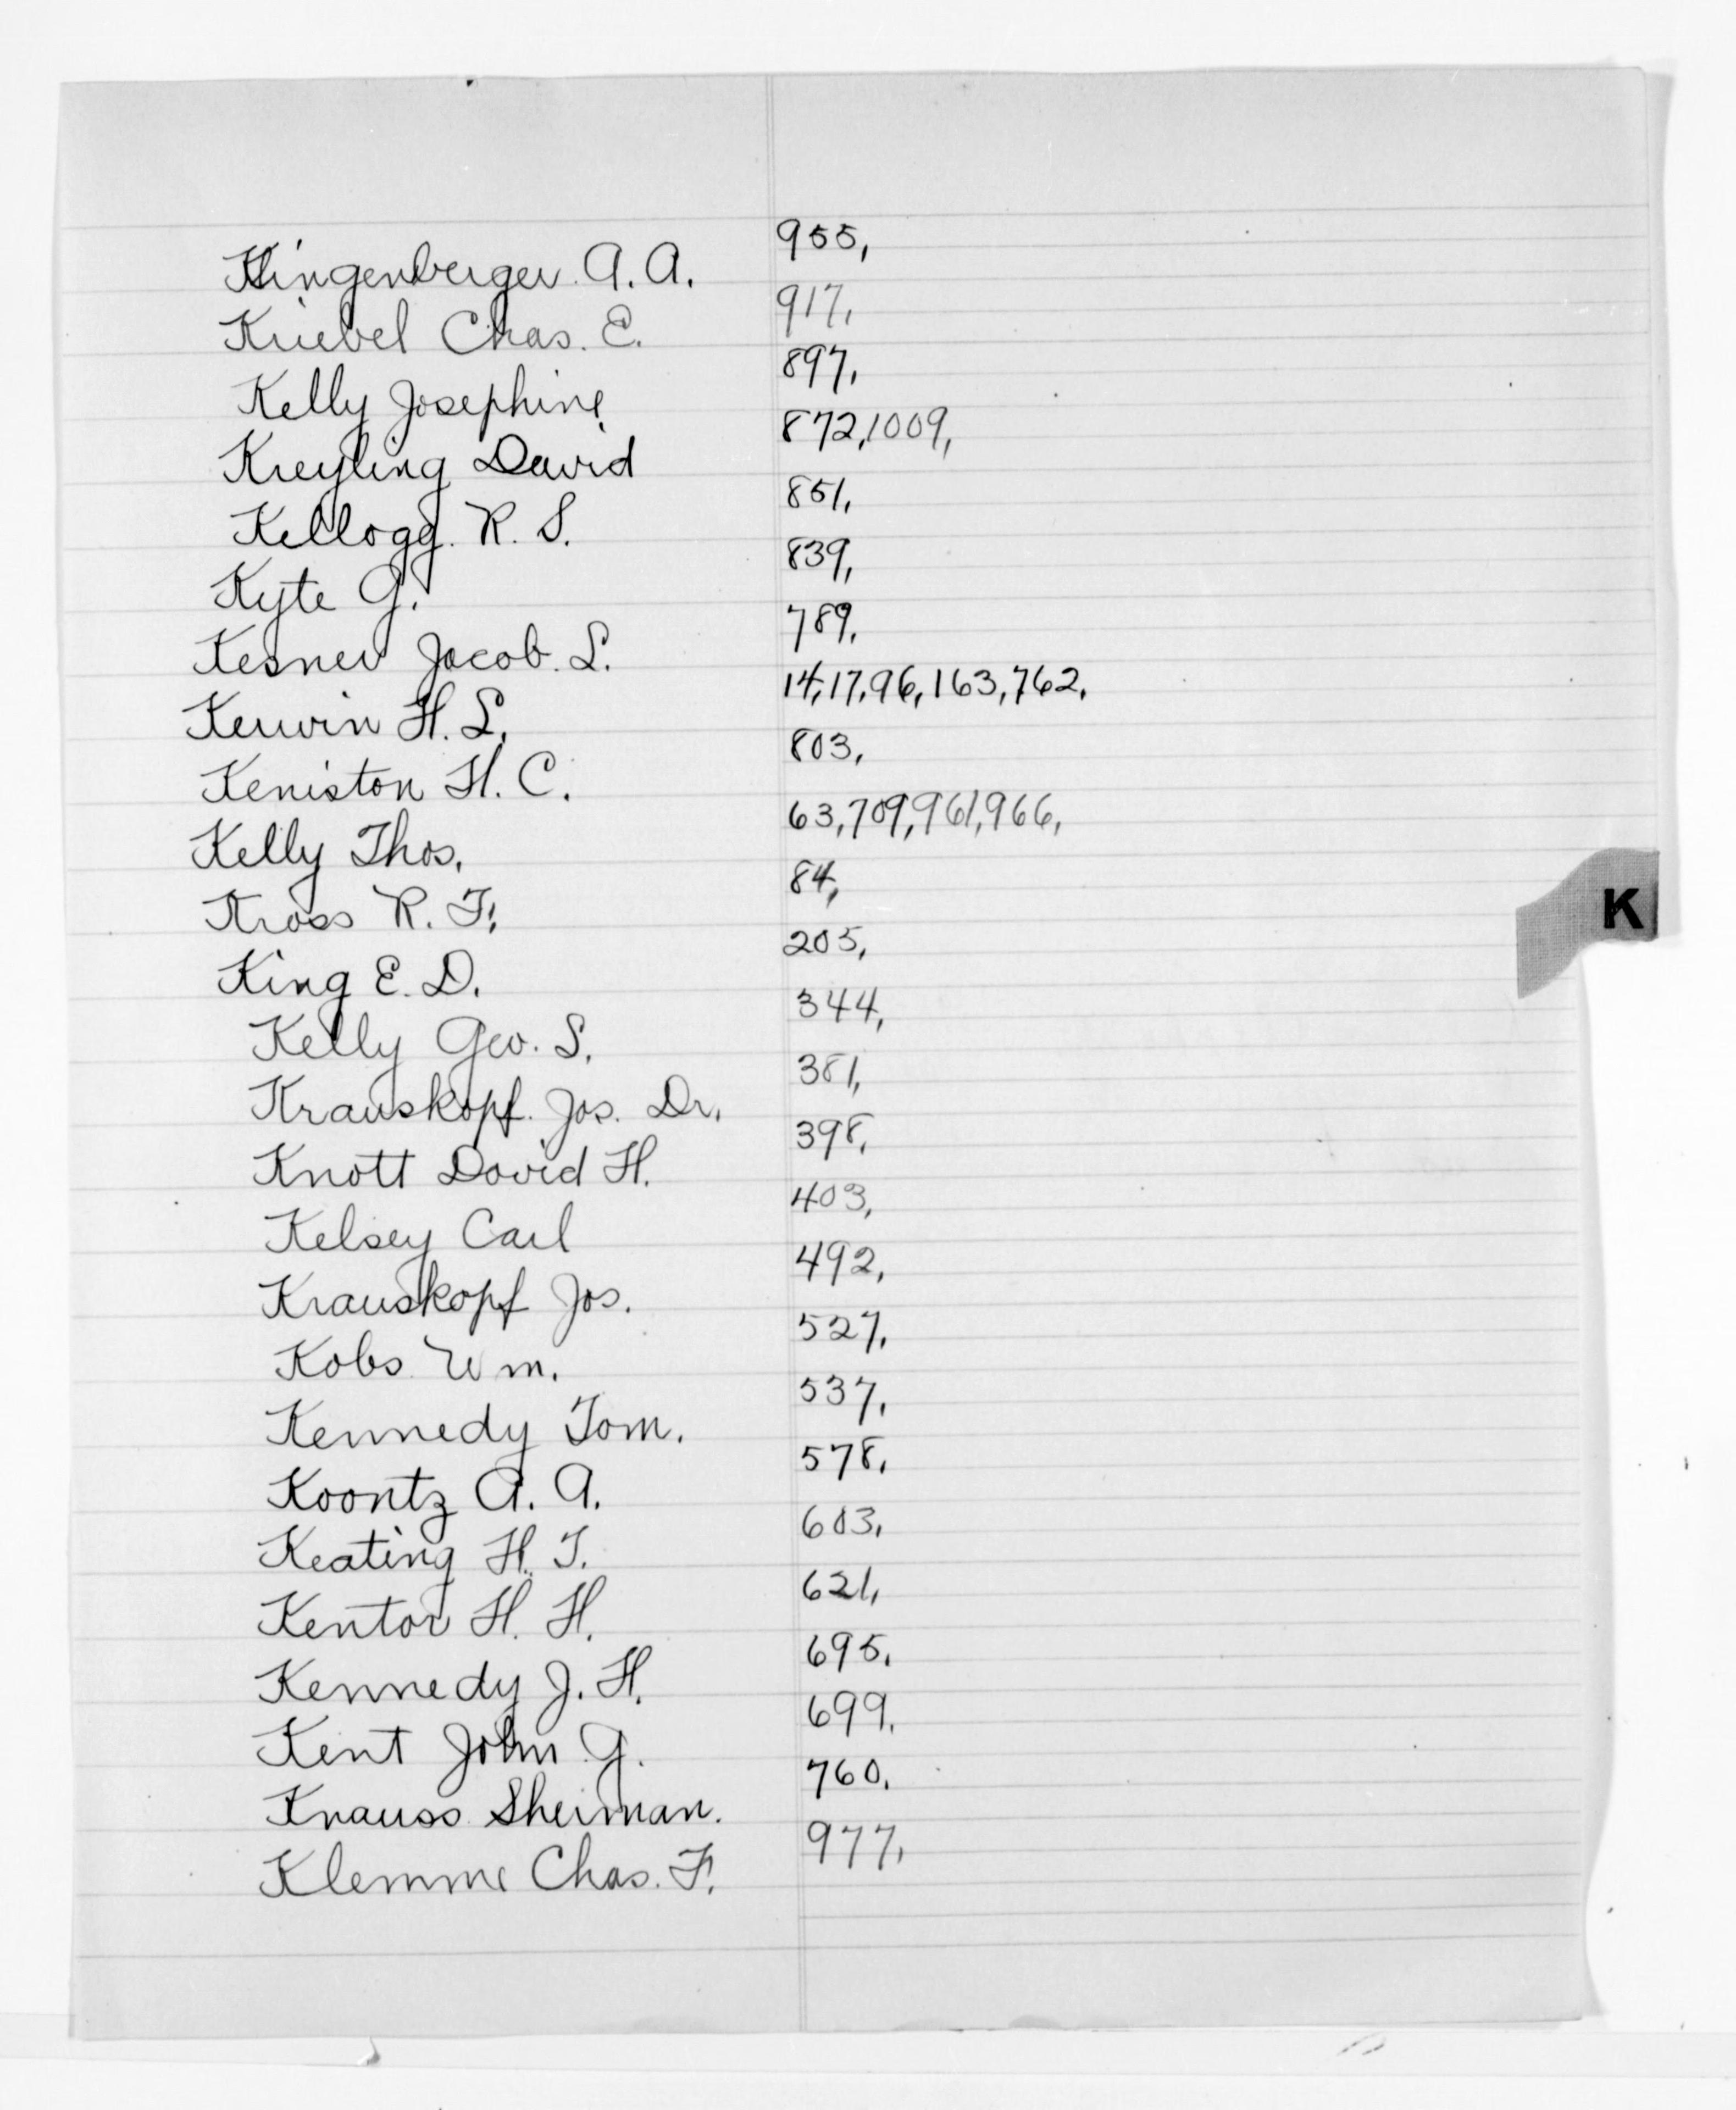 Klingenberger A. A. 955,
Kriebel Chas. E. 917,
Kelly Josephine 897,
Kreyling David 872, 1009,
Kellogg R. S. 851,
Kyte G. 839,
Kesner Jacob L. 789,
Kerwin H. L. 14, 17, 96, 163, 762,
Keniston H. C. 803,
Kelly Thos. 63, 709, 961, 966,
Kross R. F. 84,
King E. D. 205,
Kelly Geo. S. 344,
Krauskopf Jos. Dr. 381,
Knott David H. 398,
Kelsey Carl 403,
Krauskopf Jos. 492,
Kobs Wm. 527,
Kennedy Tom. 537,
Koontz A. A. 578,
Keating H. T. 603,
Kentor H. H. 621,
Kennedy J. H. 695,
Kent John G. 699,
Knauss Sherman. 760,
Klemme Chas. F. 977,
K